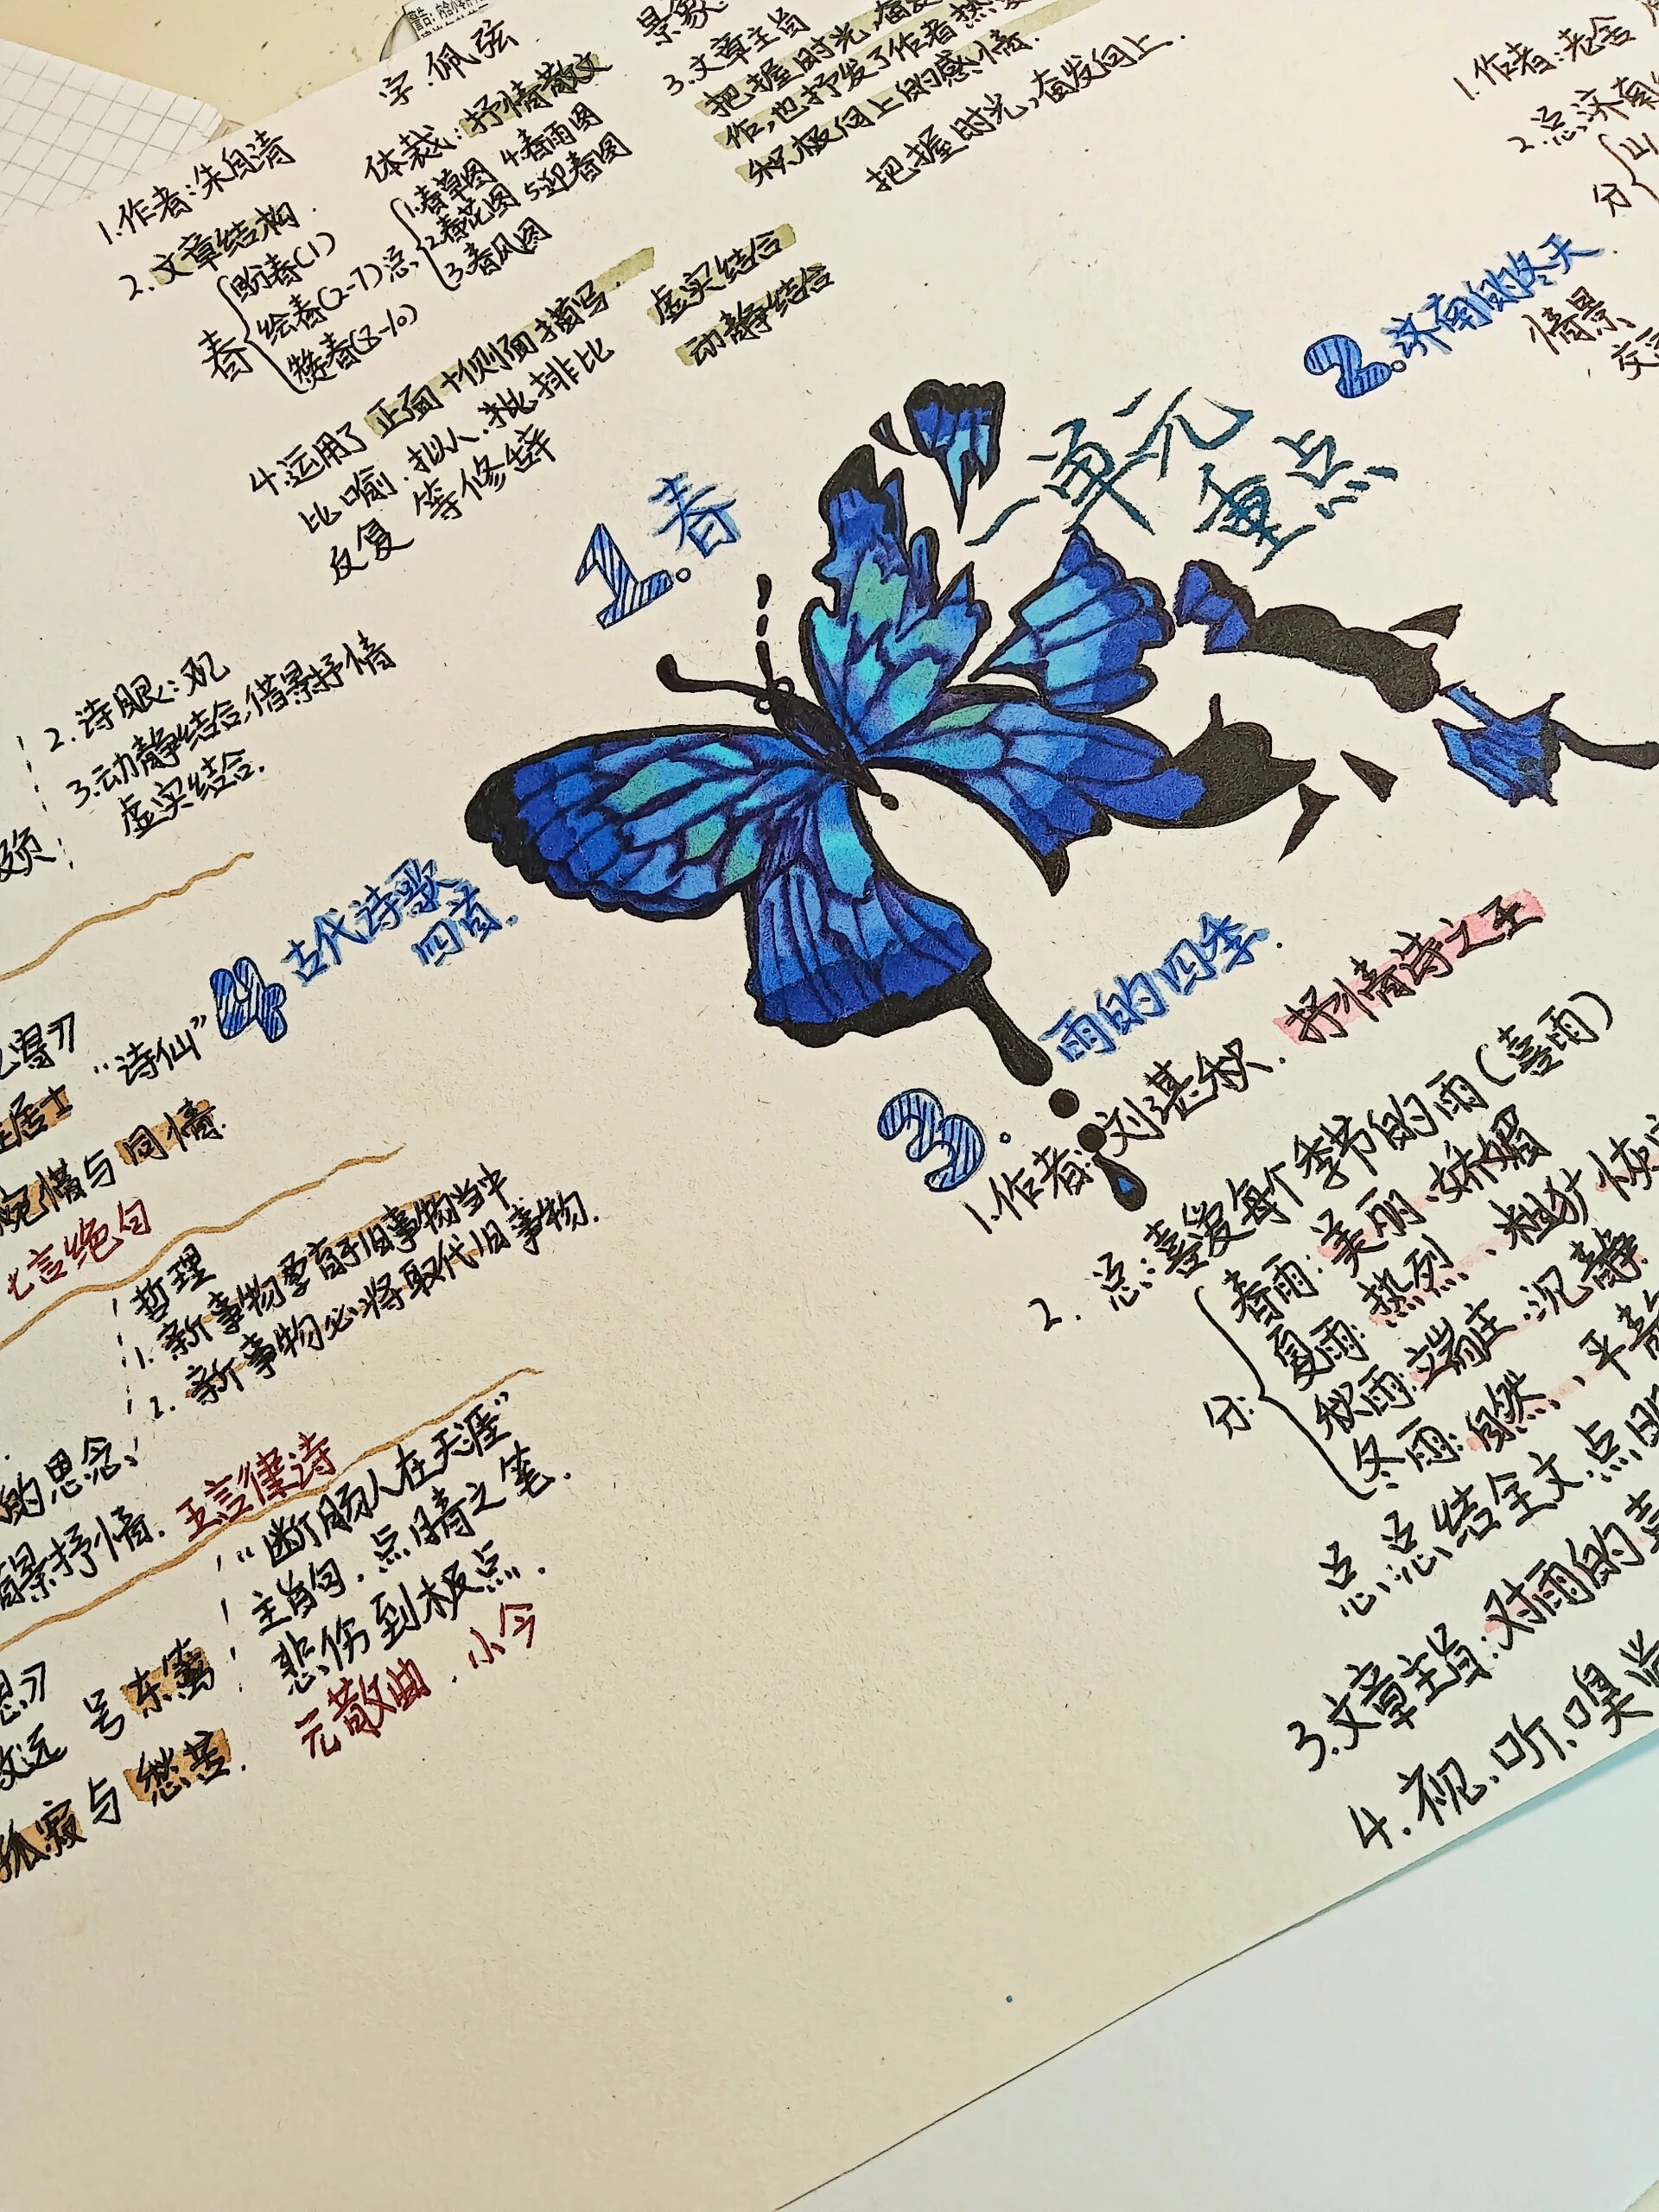 一单元
重点
1.春
1.作者:朱自清
字.佩弦
2.文章结构.
体裁:抒情散文
春
盼春(1)
绘春(2-7)总
赞春(8-10)
1.春草图 4.春雨图
2.春花图 5.迎春图
3.春风图
景象
3.文章主旨
把握时光,奋发
作,也抒发了作者热爱
积极向上的感情.
把握时光,奋发向上.
4.运用了正面+侧面描写. 虚实结合
动静结合
比喻.拟人. 排比
反复 等修辞
2.济南的冬天.
1.作者:老舍
2.总:济南
分
山
情景
交
3.雨的四季.
1.作者:刘湛秋. 抒情诗之王
2. 总:喜爱每个季节的雨(喜雨)
分:
春雨:美丽、娇媚
夏雨:热烈、粗犷
秋雨:端庄.沉静
冬雨:自然、平静
总:总结全文.点明
3.文章主旨:对雨的喜
4.视.听.嗅
4 古代诗歌
四首.
2.诗眼:观
3.动静结合,借景抒情
虚实结合.
“诗仙”
居士
惋惜与同情.
七言绝句
哲理
1. 新事物孕育于旧事物当中
2. 新事物必将取代旧事物.
的思念.
抒情. 五言律诗
“断肠人在天涯”
主旨句.点睛之笔.
悲伤到极点.
致远 号东篱
孤寂与愁苦. 元散曲.小令